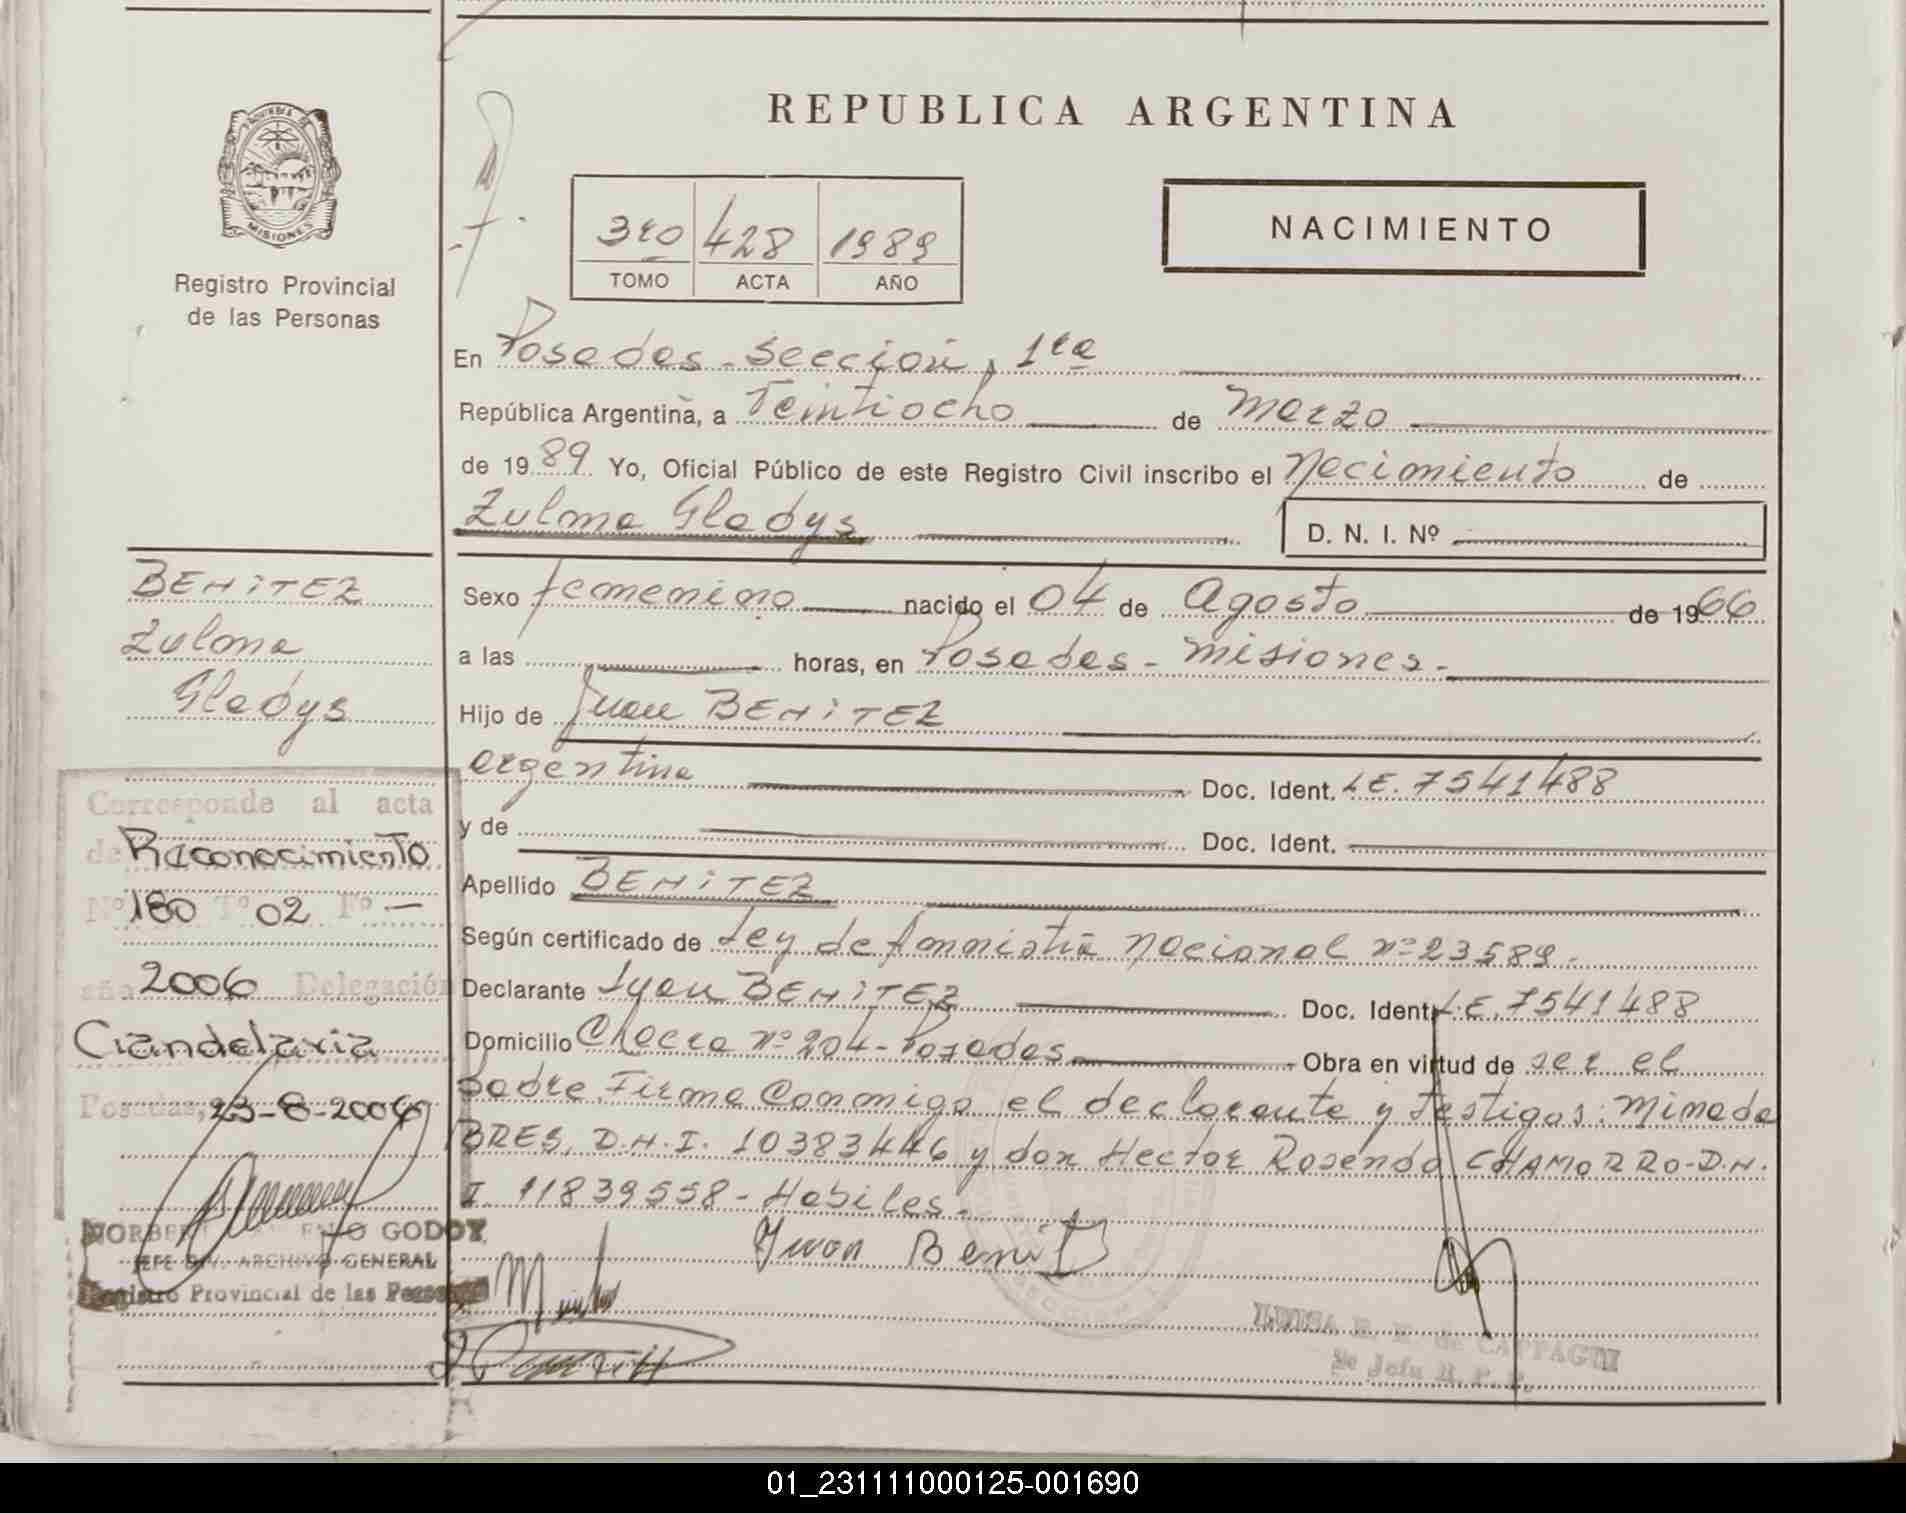 REPUBLICA ARGENTINA
MISIONES
Registro Provincial
de las Personas
3ro 428 1989
TOMO ACTA AÑO
NACIMIENTO
En Posadas - Sección, 1ra
República Argentina, a Veintiocho de Marzo
de 1989 Yo, Oficial Público de este Registro Civil inscribo el Nacimiento de
Zulma Gladys
D. N. I. Nº
BENITEZ
Zulma
Gladys
Sexo femenino nacido el 04 de Agosto de 1966
a las horas, en Posadas - Misiones.
Hijo de Juan BENITEZ
argentina Doc. Ident. LE. 7541488
y de Doc. Ident.
Apellido BENITEZ
Según certificado de Ley de Amnistia Nacional nº 23589.
Declarante Juan BENITEZ Doc. Ident. L.E. 7541488
Domicilio Chacra nº 204 - Posadas Obra en virtud de ser el
padre. Firma Conmigo el declarante y testigos: Mimada
BRES, D.N.I. 10383446 y don Hector Rosendo CHAMORRO - D.N.
I. 11839558 - Habiles.
Juan Benitez
Corresponde al acta
de Reconocimiento
Nº 180 Tº 02 Fº —
año 2006 Delegación
Candelaria
Posadas, 23-8-2006
GODOY
JEFE DIV. ARCHIVO GENERAL
Registro Provincial de las Personas
LUISA de
Jefa R. P. P.
01_231111000125-001690